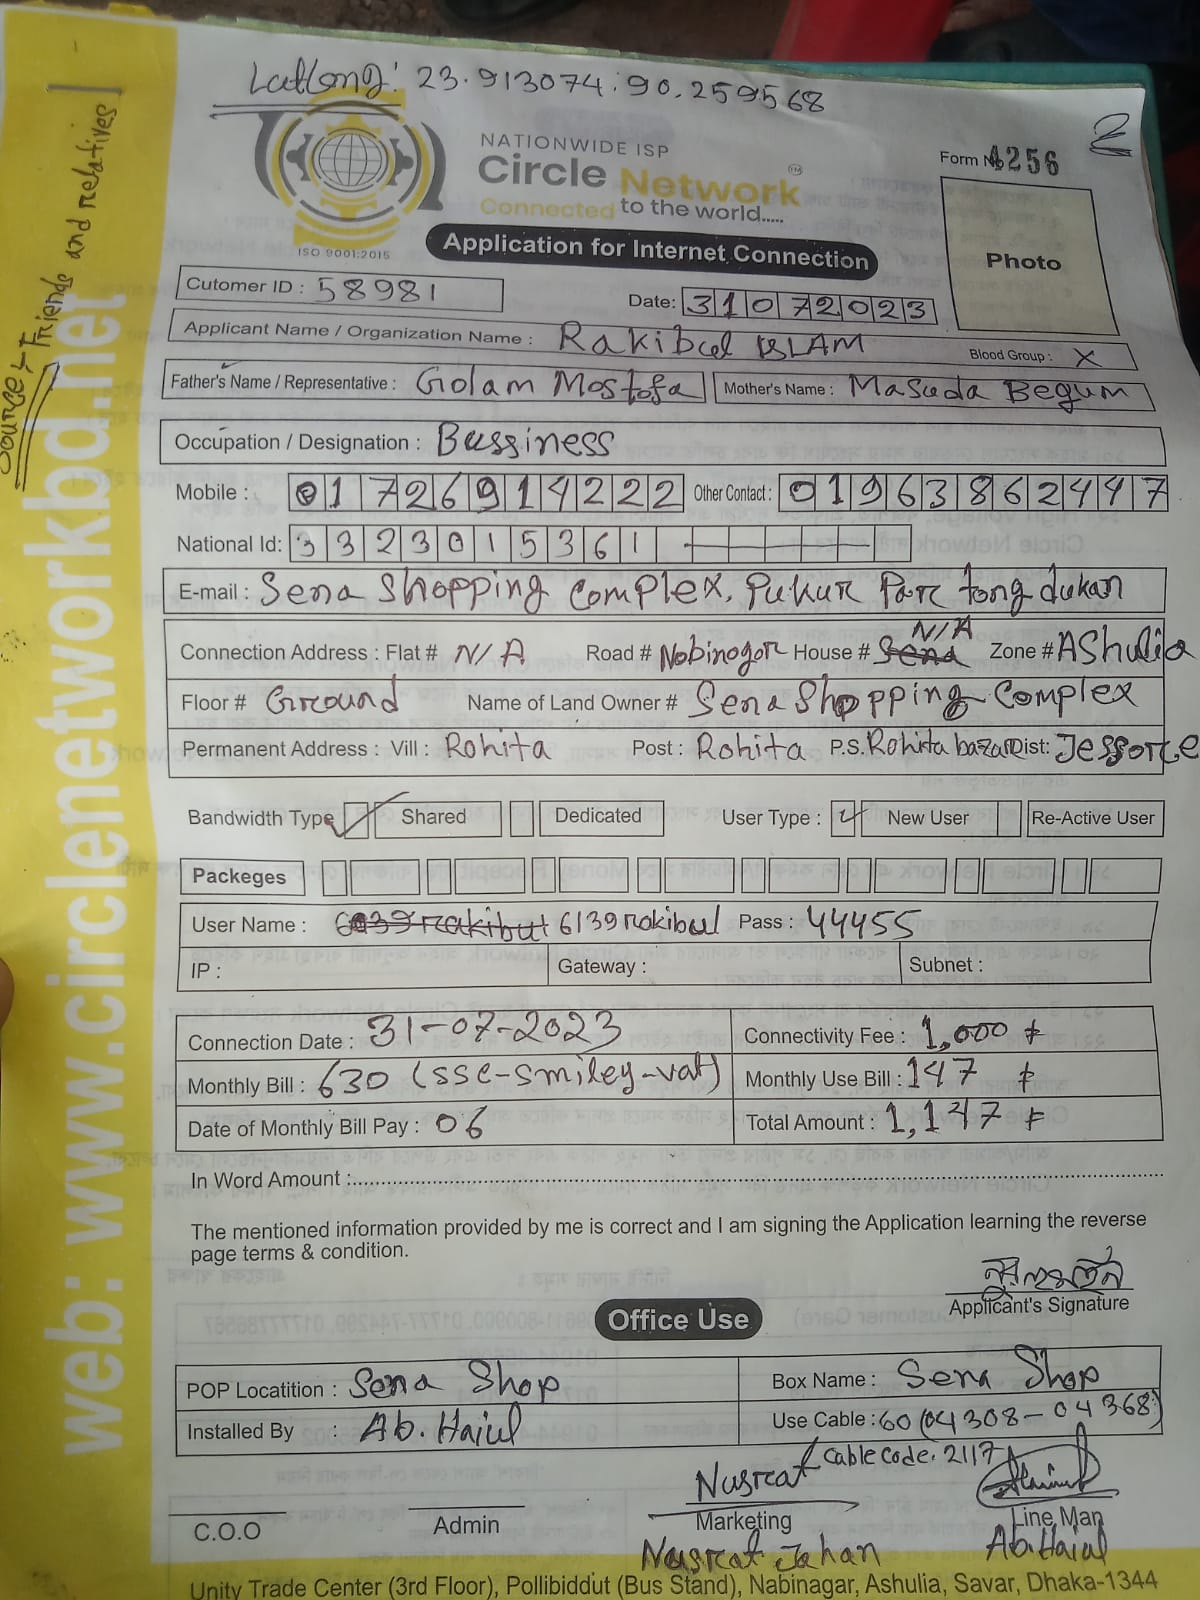 Latlong: 23.913074:90.259568
2
NATIONWIDE ISP
Circle Network TM
Connected to the world.....
ISO 9001:2015
Form No 4256
Photo
Application for Internet Connection
Cutomer ID : 58981
Date: 31072023
Applicant Name / Organization Name : Rakibul ISLAM
Blood Group : X
Father's Name / Representative : Golam Mostofa
Mother's Name : Masuda Begum
Occupation / Designation : Bussiness
Mobile : 01726914222 Other Contact : 01963862447
National Id: 3323015361
E-mail : Sena Shopping Complex, Pukur Par tong dukan
Connection Address : Flat # N/A Road # Nobinogor House # Sena N/A Zone # AShulia
Floor # Ground Name of Land Owner # Sena Shopping Complex
Permanent Address : Vill : Rohita Post : Rohita P.S. Rohita bazar Dist: Jessore
Bandwidth Type Shared Dedicated User Type : New User Re-Active User
Packeges
User Name : 6039rakibul 6139rakibul Pass : 44455
IP : Gateway : Subnet :
Connection Date : 31-07-2023 Connectivity Fee : 1,000 ৳
Monthly Bill : 630 (sse-smiley-vat) Monthly Use Bill : 147 ৳
Date of Monthly Bill Pay : 06 Total Amount : 1,147 ৳
In Word Amount :
The mentioned information provided by me is correct and I am signing the Application learning the reverse
page terms & condition.
Applicant's Signature
Office Use
POP Locatition : Sena Shop Box Name : Sena Shop
Installed By : Ab. Haiul Use Cable : 60 (04308-04368)
Cable Code. 2117
Nusrat
C.O.O Admin Marketing Line Man
Nusrat Jahan Ab. Haiul
Unity Trade Center (3rd Floor), Pollibiddut (Bus Stand), Nabinagar, Ashulia, Savar, Dhaka-1344
web: www.circlenetworkbd.net
Source:- Friends and relatives